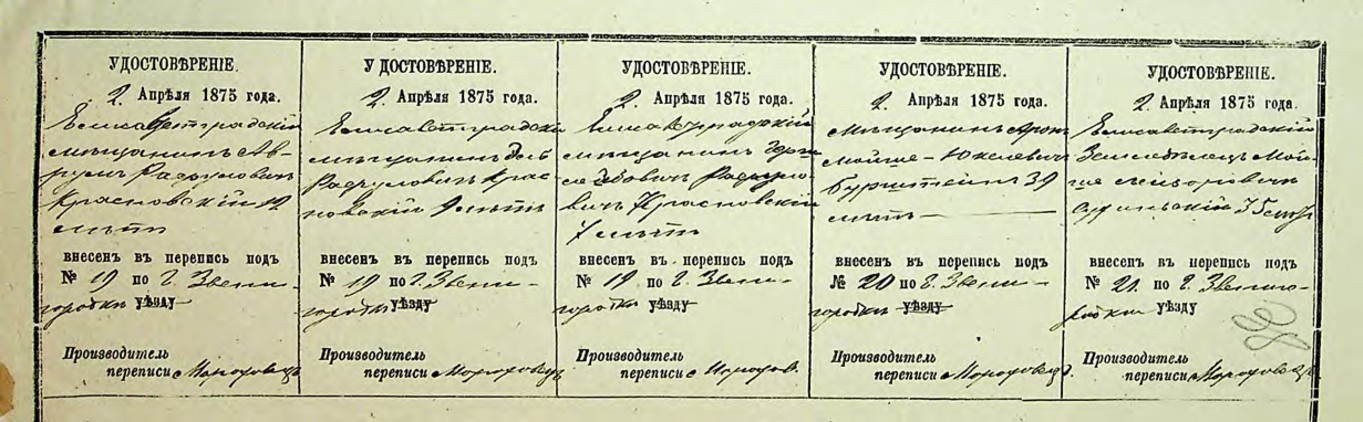 УДОСТОВѢРЕНІЕ.
2. Апрѣля 1875 года.
Елисаветградскій
мѣщанинъ Ав-
румъ Рафуловичъ
Красновскій 12
лѣтъ
внесенъ въ перепись подъ
№ 19 по г. Звени-
городкѣ уѣзду
Производитель
переписи
УДОСТОВѢРЕНІЕ.
2. Апрѣля 1875 года.
Елисаветградскій
мѣщанинъ
Рафуловичъ Крас-
новскій 9 лѣтъ
внесенъ въ перепись подъ
№ 19 по г. Звени-
городкѣ уѣзду
Производитель
переписи
УДОСТОВѢРЕНІЕ.
2. Апрѣля 1875 года.
Елисаветградскій
мѣщанинъ Герш
Рафуло-
вичъ Красновскій
7 лѣтъ
внесенъ въ перепись подъ
№ 19 по г. Звени-
городкѣ уѣзду
Производитель
переписи
УДОСТОВѢРЕНІЕ.
2. Апрѣля 1875 года.
Мѣщанинъ Аронъ
Мойше-Юкелевичъ
Бурштейнъ 39
лѣтъ
внесенъ въ перепись подъ
№ 20 по г. Звени-
городкѣ уѣзду
Производитель
переписи
УДОСТОВѢРЕНІЕ.
2. Апрѣля 1875 года.
Елисаветградскій
Земледѣлецъ Мой-
ше Лейзоровичъ
35 лѣтъ
внесенъ въ перепись подъ
№ 21. по г. Звениго-
родкѣ уѣзду
Производитель
переписи